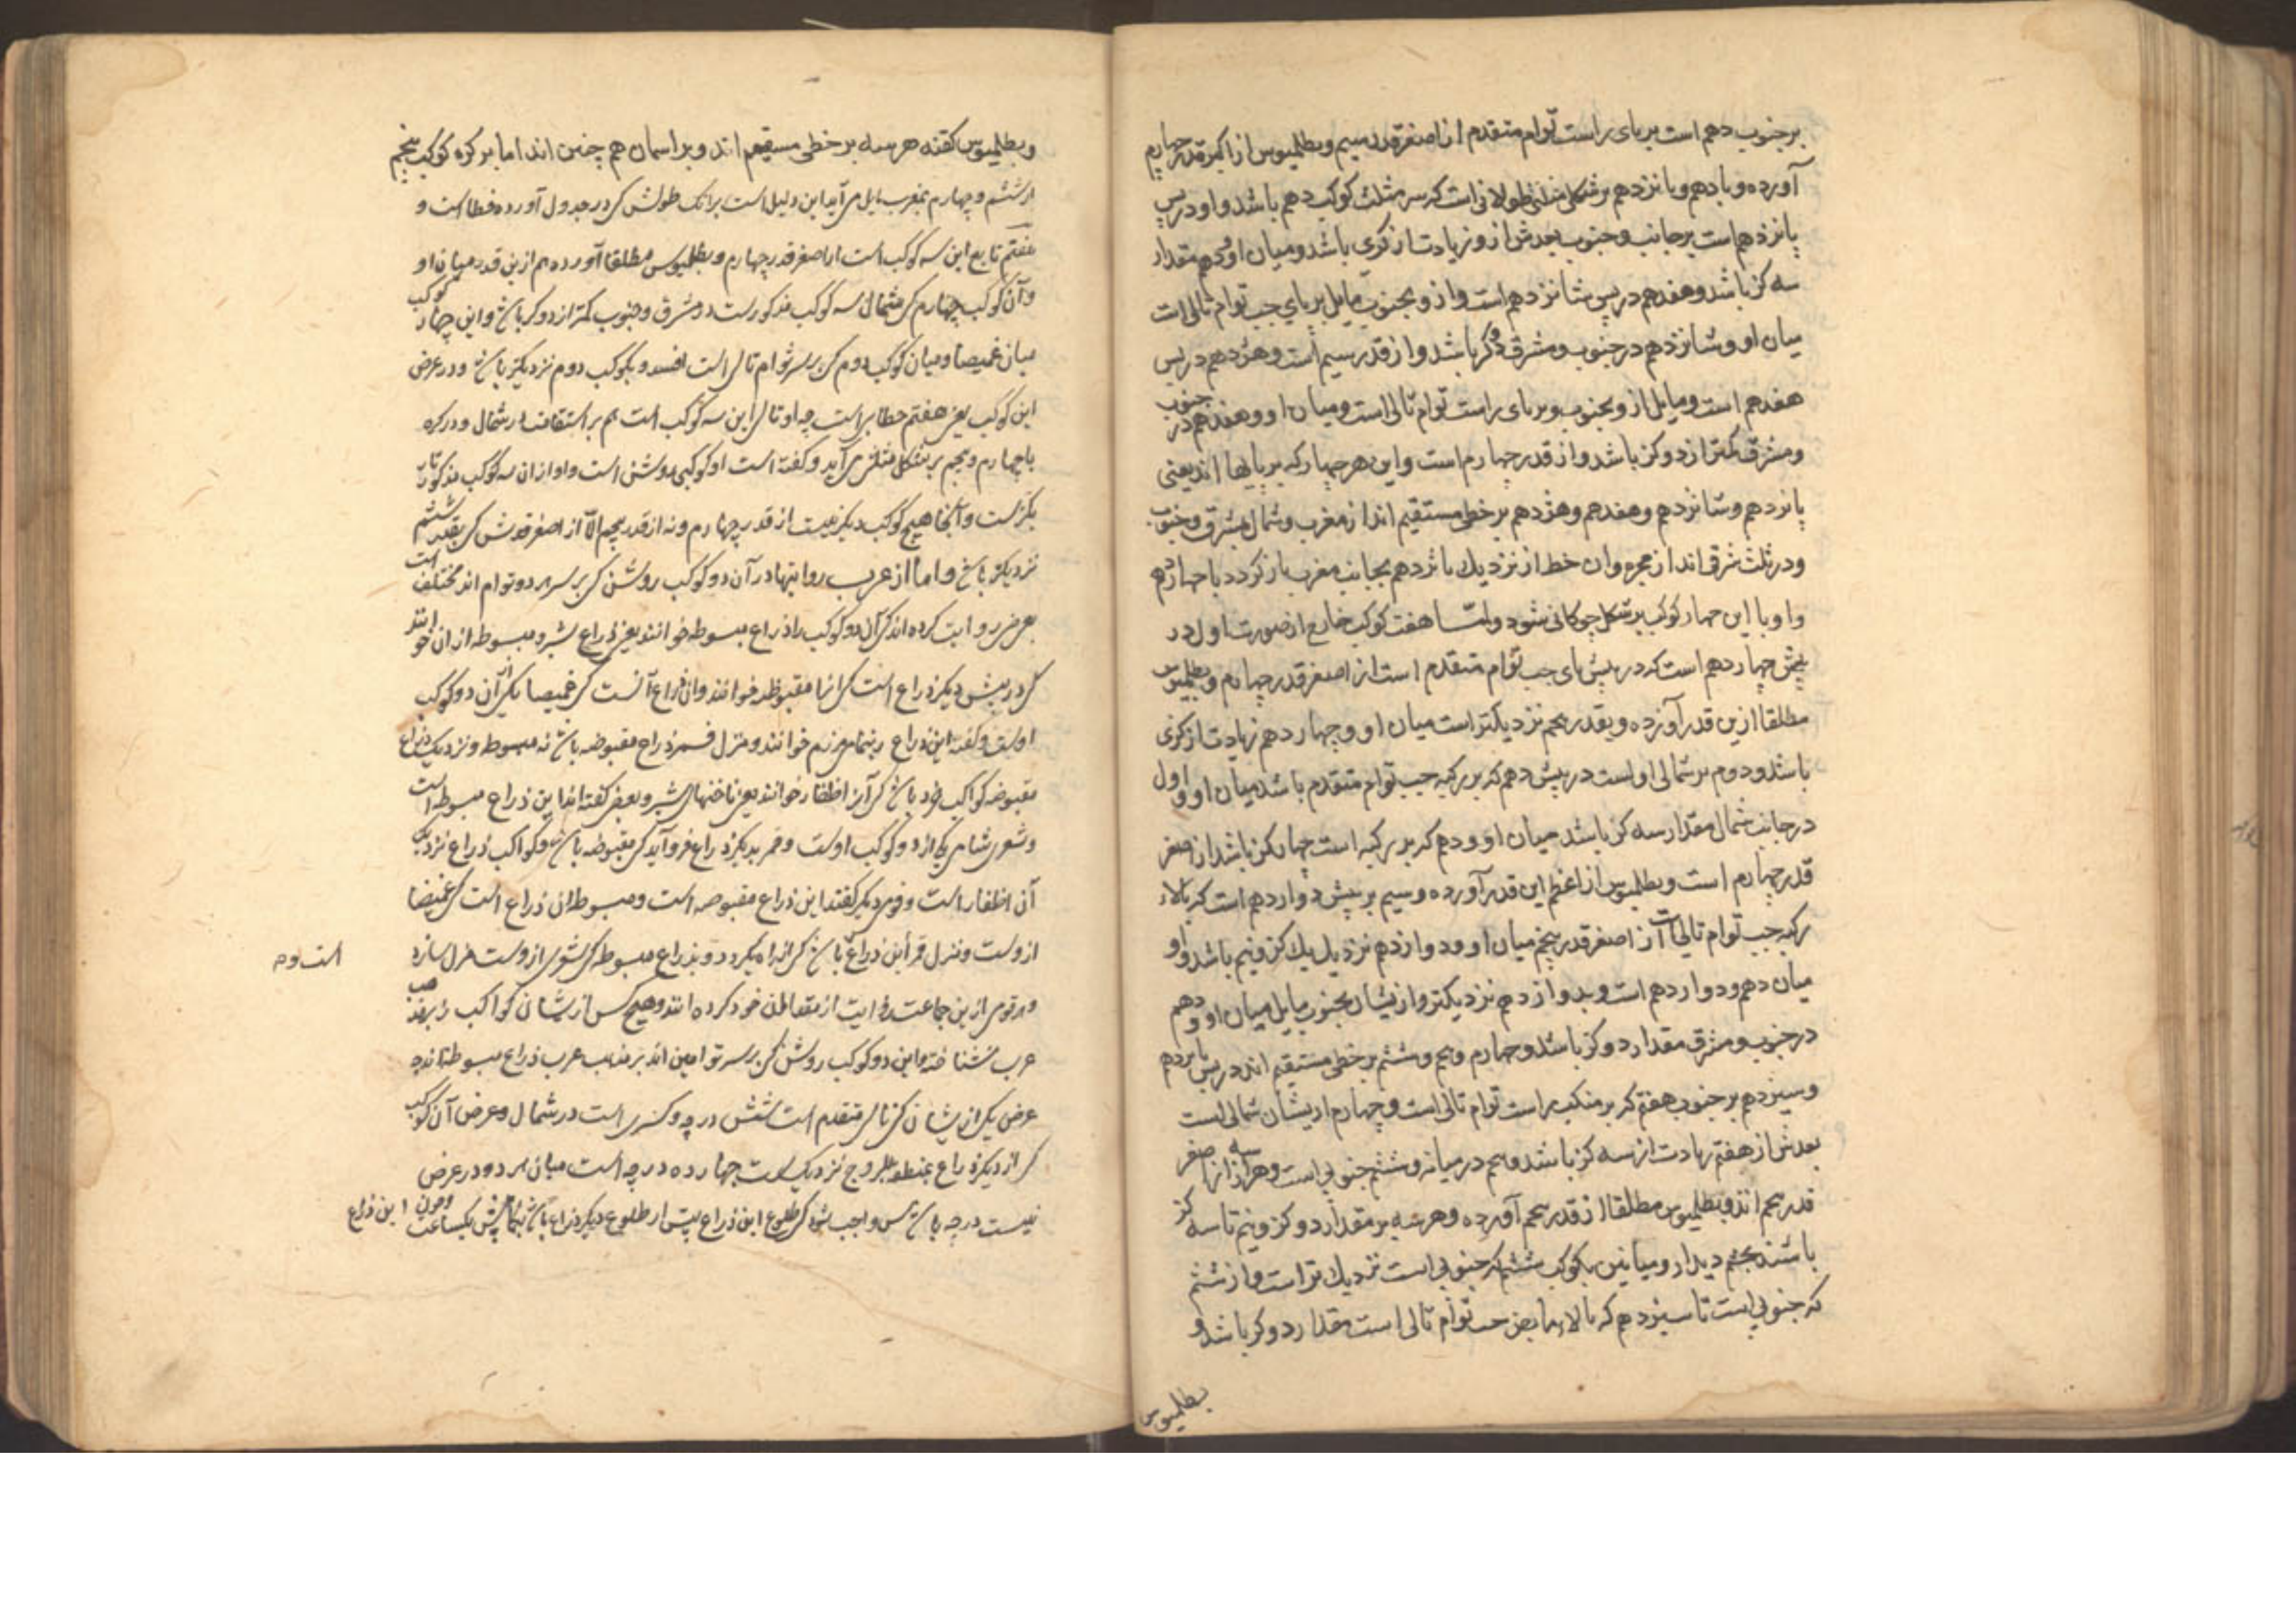 بر جنوب دهم است بر پای راست توام متقدم از اصغر قدر سیم و بطلمیوس از اکبر قدر چهارم
آورده و با دهم و پانزدهم بر شکل مثلثی طولانی است که سر مثلث کوکب دهم باشد و او در پس
پانزدهم است بر جانب و جنوب بعدش ازو زیادت از گزی باشد و میان او مقدار
سه گز باشد و هفدهم در پس شانزدهم است و ازو بجنوب مایل بر پای جب توام تالی است
میان او و شانزدهم در جنوب و مشرق دو گز باشد و از قدر سیم است و هژدهم در پس
هفدهم است و مایل ازو بجنوب و بر پای راست توام تالی است و میان او و هفدهم در جنوب
و مشرق کمتر از دو گز باشد و از قدر چهارم است و این هر چهار که بر پایها اند یعنی
پانزدهم و شانزدهم و هفدهم و هژدهم بر خطی مستقیم اند از مغرب و شمال بمشرق و جنوب
و در ثلث شرقی اند از مجره و ان خط از نزدیك پانزدهم بجانب مغرب باز کردد با چهاردهم
و او با این چهار کوکب بر شکل چوکانی شود و امّا هفت کوکب خارج از صورت اول در
پیش چهاردهم است که در پیش پای جب توام متقدم است از اصغر قدر چهارم و بطلمیوس
مطلقا ازین قدر آورده و بقدر پنجم نزدیکتر است میان او و چهاردهم زیادت از گزی
باشد و دوم بر شمالی اول است در پیش دهم که بر رکبه جب توام متقدم باشد میان او و اول
در جانب شمال مقدار سه گز باشد میان او و دهم که بر رکبه است چهار گز باشد از اصغر
قدر چهارم است و بطلمیوس از اعظم این قدر آورده و سیم بر پیش دوازدهم است که بالاء
رکبه جب توام تالی است از اصغر قدر پنجم میان او و دوازدهم نزدیك یك گز و نیم باشد و او
میان دهم و دوازدهم است و بدوازدهم نزدیکتر و ازیشان بجنوب مایل میان او و دهم
در جنوب و مشرق مقدار دو گز باشد و چهارم و پنجم و ششم بر خطی مستقیم اند در پس یازدهم
و سیزدهم بر جنوب هفتم که بر منکب راست توام تالی است و چهارم ازیشان شمالی است
بعدش از هفتم زیادت از سه گز باشد و پنجم در میانه و ششم جنوبی است و هر سه از اصغر
قدر پنجم اند و بطلمیوس مطلقا از قدر پنجم آورده و هر سه بر مقدار دو گز و نیم تا سه گز
باشند بچشم دیدار و میانین بکوکب ششم که جنوبی است نزدیك تر است و از ششم
که جنوبی است تا سیزدهم که بالاء جب توام تالی است مقدار دو گز باشد و
بطلمیوس
و بطلمیوس گفته هر سه بر خطی مستقیم اند و بر اسمان هم چنین اند اما بر کره کوکب پنجم
از ششم و چهارم بمغرب مایل می آید این دلیل است برانک طولش که در جدول آورده خطا است و
هفتم تابع این سه کوکب است از اصغر قدر چهارم و بطلمیوس مطلقا آورده هم ازین قدر میان او
و آن کوکب چهارم که شمالی سه کوکب مذکورست در مشرق و جنوب کمتر از دو گز باشد و این چهار کوکب
میان غمیصا و میان کوکب دوم که بر سر توام تالی است افتد و بکوکب دوم نزدیکتر باشد و در عرض
این کوکب یعنی هفتم خطا بر است چه او تالی این سه کوکب است هم بر استقامت در شمال و در کره
با چهارم و پنجم بر شکل مثلثی می آید و گفته است او کوکبی روشن است و او از ان سه کوکب مذکور
بزرگست و آنجا هیچ کوکب دیگر نیست از قدر چهارم و نه از قدر پنجم الّا از اصغر قدرش که بقدر ششم
نزدیکتر باشد و اما از عرب روایتها در آن دو کوکب روشن که بر سر هر دو توام اند مختلف است
بعضی روایت کرده اند که آن دو کوکب را ذراع مبسوطه خوانند یعنی ذراع شیر و مبسوطه از ان خوانند
که در پیش دیگر ذراع است که انرا مقبوضه خوانند و ان ذراع آنست که غمیصا یکی از آن دو کوکب
اوست و گفته اند این ذراع را مرزم خوانند و منزل قمر ذراع مقبوضه باشد نه مبسوطه و نزدیك ذراع
مقبوضه کواکب خرد باشد که آنرا اظفار خوانند یعنی ناخنهای شیر و بعضی گفته اند این ذراع مبسوطه است
و شعری شامی یکی از دو کوکب اوست و قمر بدیگر ذراع فرو آید که مقبوضه باشد و کواکب ذراع نزدیك
آن اظفار است و قومی دیگر گفتند این ذراع مقبوضه است و مبسوطه ان ذراع است که غمیصا
ازوست و منزل قمر این ذراع باشد که از راه بگردد و بذراع مبسوطه که شعری ازوست منزل سازد
و هر قومی ازین جماعت روایت از خود کرده اند و هیچ کس ازیشان کواکب را بر مذهب
عرب نشناخته و این دو کوکب روشن که بر سر توامین اند بر مذهب عرب ذراع مبسوطه اند چه
عرض یکی ازیشان که تالی متقدم است شش درجه و کسری است در شمال و عرض آن کوکب
که از دیگر ذراع بمنطقه البروج نزدیك است چهارده درجه است میان هر دو در عرض
بیست درجه باشد پس واجب شود که طلوع این ذراع پیش از طلوع دیگر ذراع باشد یکساعت و چون این ذراع